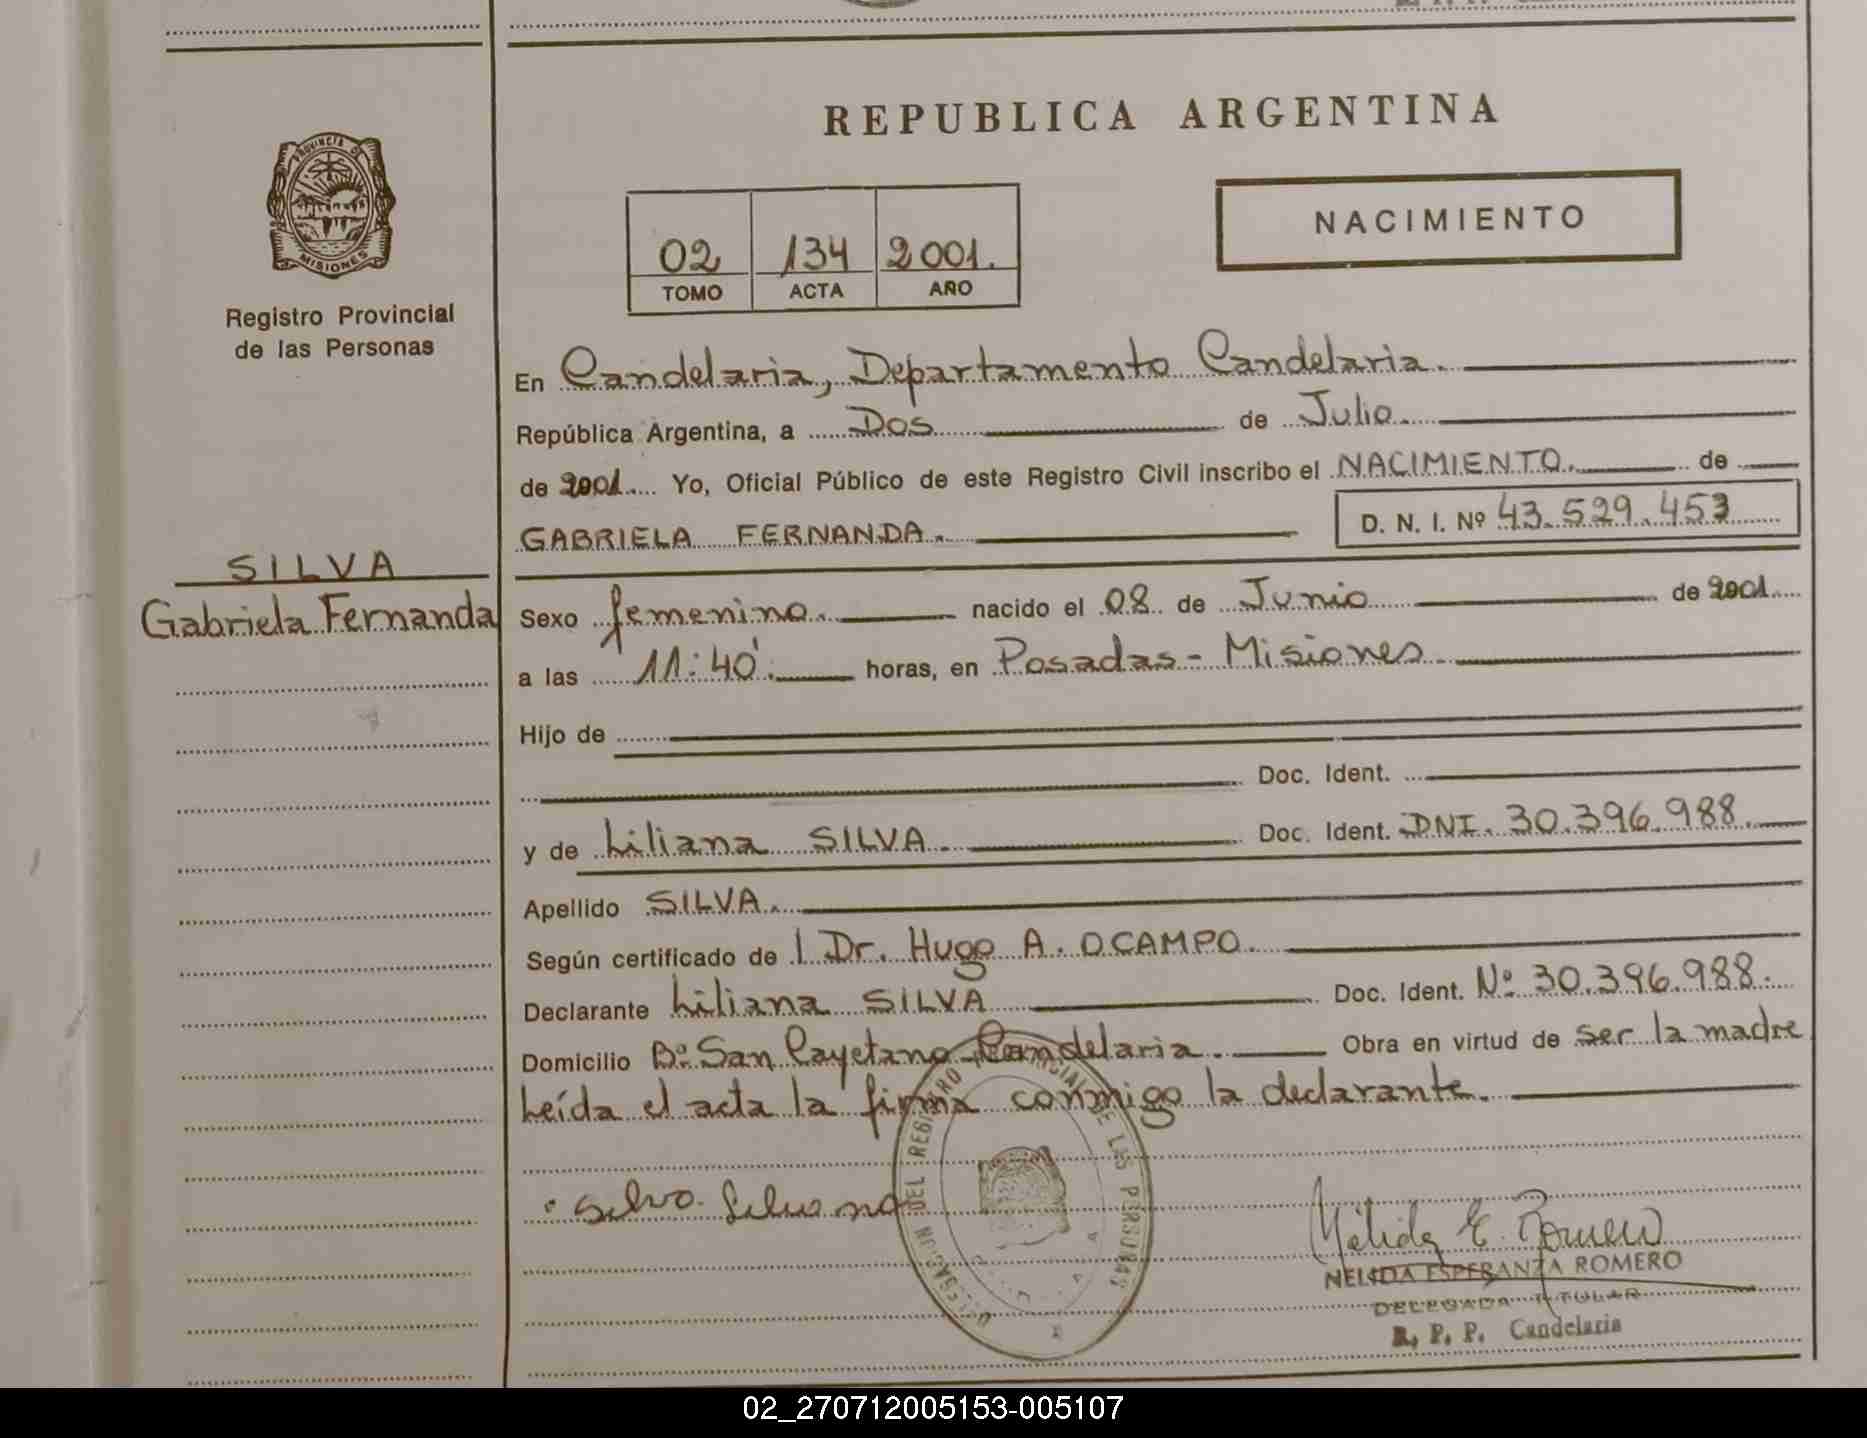 REPUBLICA ARGENTINA
PROVINCIA DE
MISIONES
Registro Provincial
de las Personas
02 134 2001.
TOMO ACTA AÑO
NACIMIENTO
En Candelaria, Departamento Candelaria.
República Argentina, a Dos de Julio
de 2001. Yo, Oficial Público de este Registro Civil inscribo el NACIMIENTO. de
GABRIELA FERNANDA. D. N. I. Nº 43.529.453
SILVA
Gabriela Fernanda
Sexo femenino. nacido el 08 de Junio de 2001
a las 11:40'. horas, en Posadas - Misiones
Hijo de
Doc. Ident.
y de Liliana SILVA. Doc. Ident. DNI. 30.396.988.
Apellido SILVA.
Según certificado de l Dr. Hugo A. OCAMPO.
Declarante Liliana SILVA Doc. Ident. Nº 30.396.988.
Domicilio Bº San Cayetano - Candelaria. Obra en virtud de ser la madre
Leída el acta la firma conmigo la declarante.
DELEGACION DEL REGISTRO PROVINCIAL DE LAS PERSONAS
Nélida E. Romero
NELIDA ESPERANZA ROMERO
DELEGADA TITULAR
R. P. P. Candelaria
02_270712005153-005107